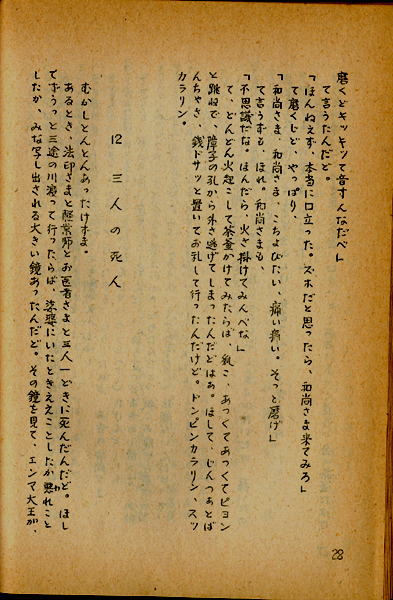 磨くどキッキッて音すんなだべ」
て言うたんだど。
「ほんねえず、本当に口立った。ズホだと思ったら、和尚さま来てみろ」
て磨くじど、やっぱり、
「和尚さま、和尚さま、こちょびたい、痛い痛い。そっと磨げ」
て言うずも、ほれ。和尚さまも、
「不思議だな。ほんだら、火さ掛けてみんべな」
て、どんどん火起こして茶釜かけてみたらば、狐こ、あつくてあつくてピョン
と跳ねて、障子の孔から外さ逃げてしまったんだどはぁ。ほして、じんつぁとば
んちゃさ、銭ドサッと置いてお礼して行ったんだけど。ドンピンカラリン、スッ
カラリン。
12 三人の死人
むかしとんとんあったけずま。
あるとき、法印さまと軽業師とお医者さまと三人一どきに死んだんだど。ほし
てずうっと三途の川渡って行ったらば、娑婆にいたときええことしたか悪れこと
したか、みな写し出される大きい鏡あったんだど。その鏡を見て、エンマ大王が、
28